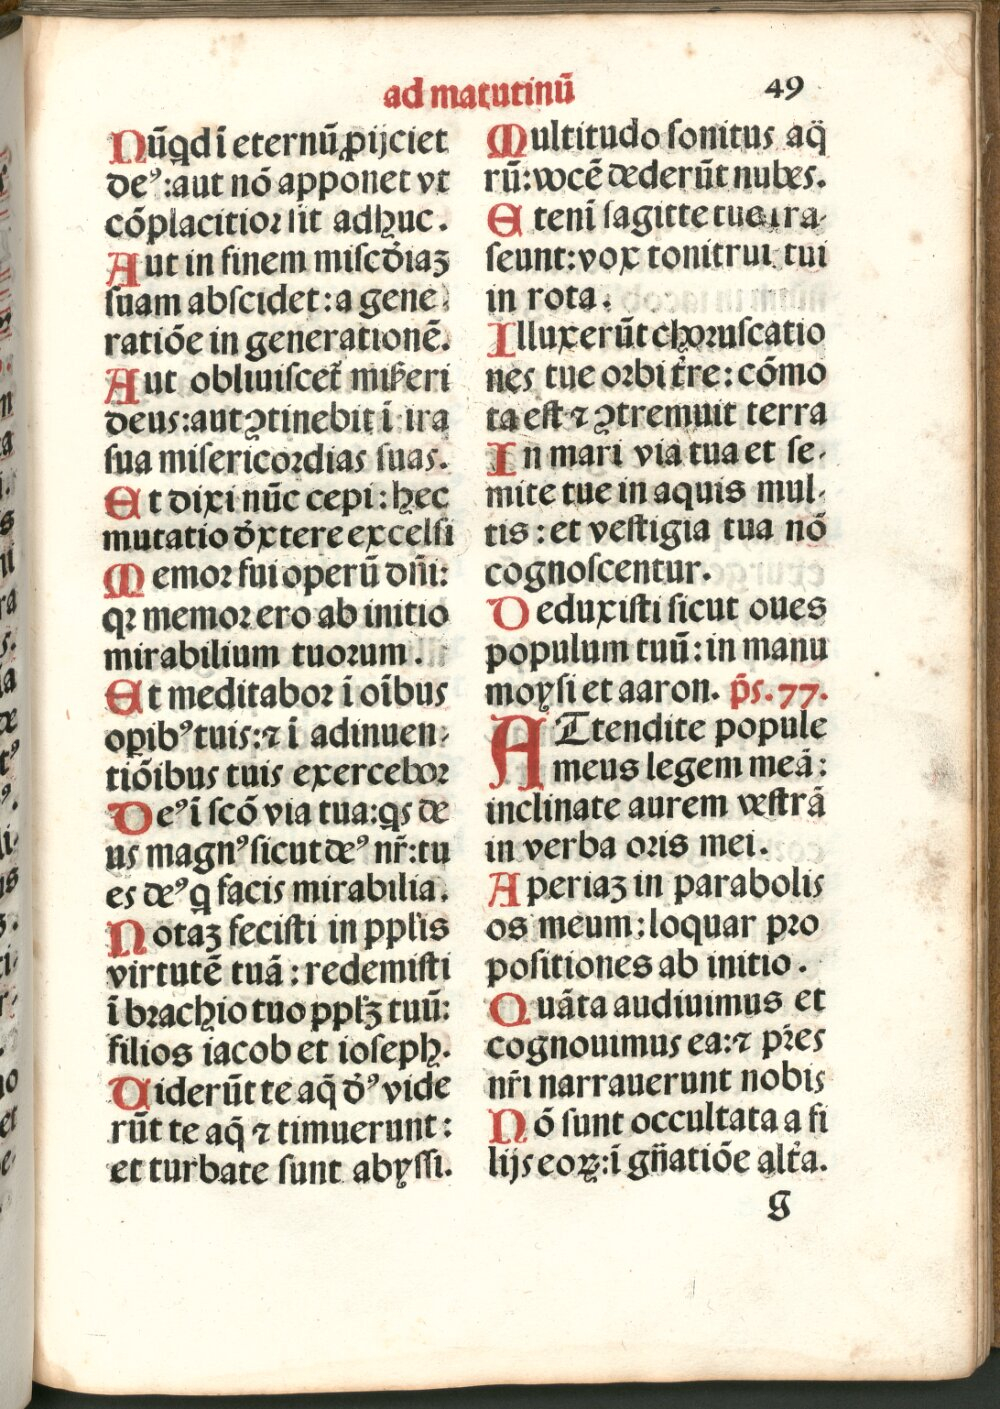 ad matutinū
49
Nūqd ī eternū ꝓijciet
deꝰ:aut nō apponet vt
cōplacitior sit adhuc.
Aut in finem miscd̄iaꝫ
suam abscidet:a gene
ratiōe in generationē.
Aut obliuiscet̄ mis̄eri
deus:aut ꝯtinebit ī ira
sua misericordias suas.
Et dixi nūc cepi:hec
mutatio dextere excelsi
Memor fui operū dn̄i:
qꝛ memor ero ab initio
mirabilium tuorum.
Et meditabor ī oībus
opibꝰ tuis:⁊ ī adinuen-
tiōibus tuis exercebor
Deꝰ ī scō via tua:qs de
us magnꝰ sicut deꝰ nr̄:tu
es deꝰ q̄ facis mirabilia.
Notaꝫ fecisti in ppl̄is
virtutē tuā:redemisti
ī brachio tuo pplꝫ tuū:
filios iacob et ioseph.
Viderūt te aq̄ d̄ꝰ vide
rūt te aq̄ ⁊ timuerunt:
et turbate sunt abyssi.
Multitudo sonitus aq̄
rū:vocē dederūt nubes.
Etenī sagitte tue tra-
seunt:vox tonitrui tui
in rota.
Illuxerūt choruscatio
nes tue orbi tr̄re:cōmo
ta est ⁊ ꝯtremuit terra
In mari via tua et se-
mite tue in aquis mul-
tis:et vestigia tua nō
cognoscentur.
Deduxisti sicut oues
populum tuū:in manu
moysi et aaron. ps̄.77.
ATtendite popule
meus legem meā:
inclinate aurem vestrā
in verba oris mei.
Aperiaꝫ in parabolis
os meum:loquar pro
positiones ab initio.
Quāta audiuimus et
cognouimus ea:⁊ pr̄es
nr̄i narrauerunt nobis
Nō sunt occultata a fi
lijs eoꝝ:ī gn̄atiōe alt̄a.
g